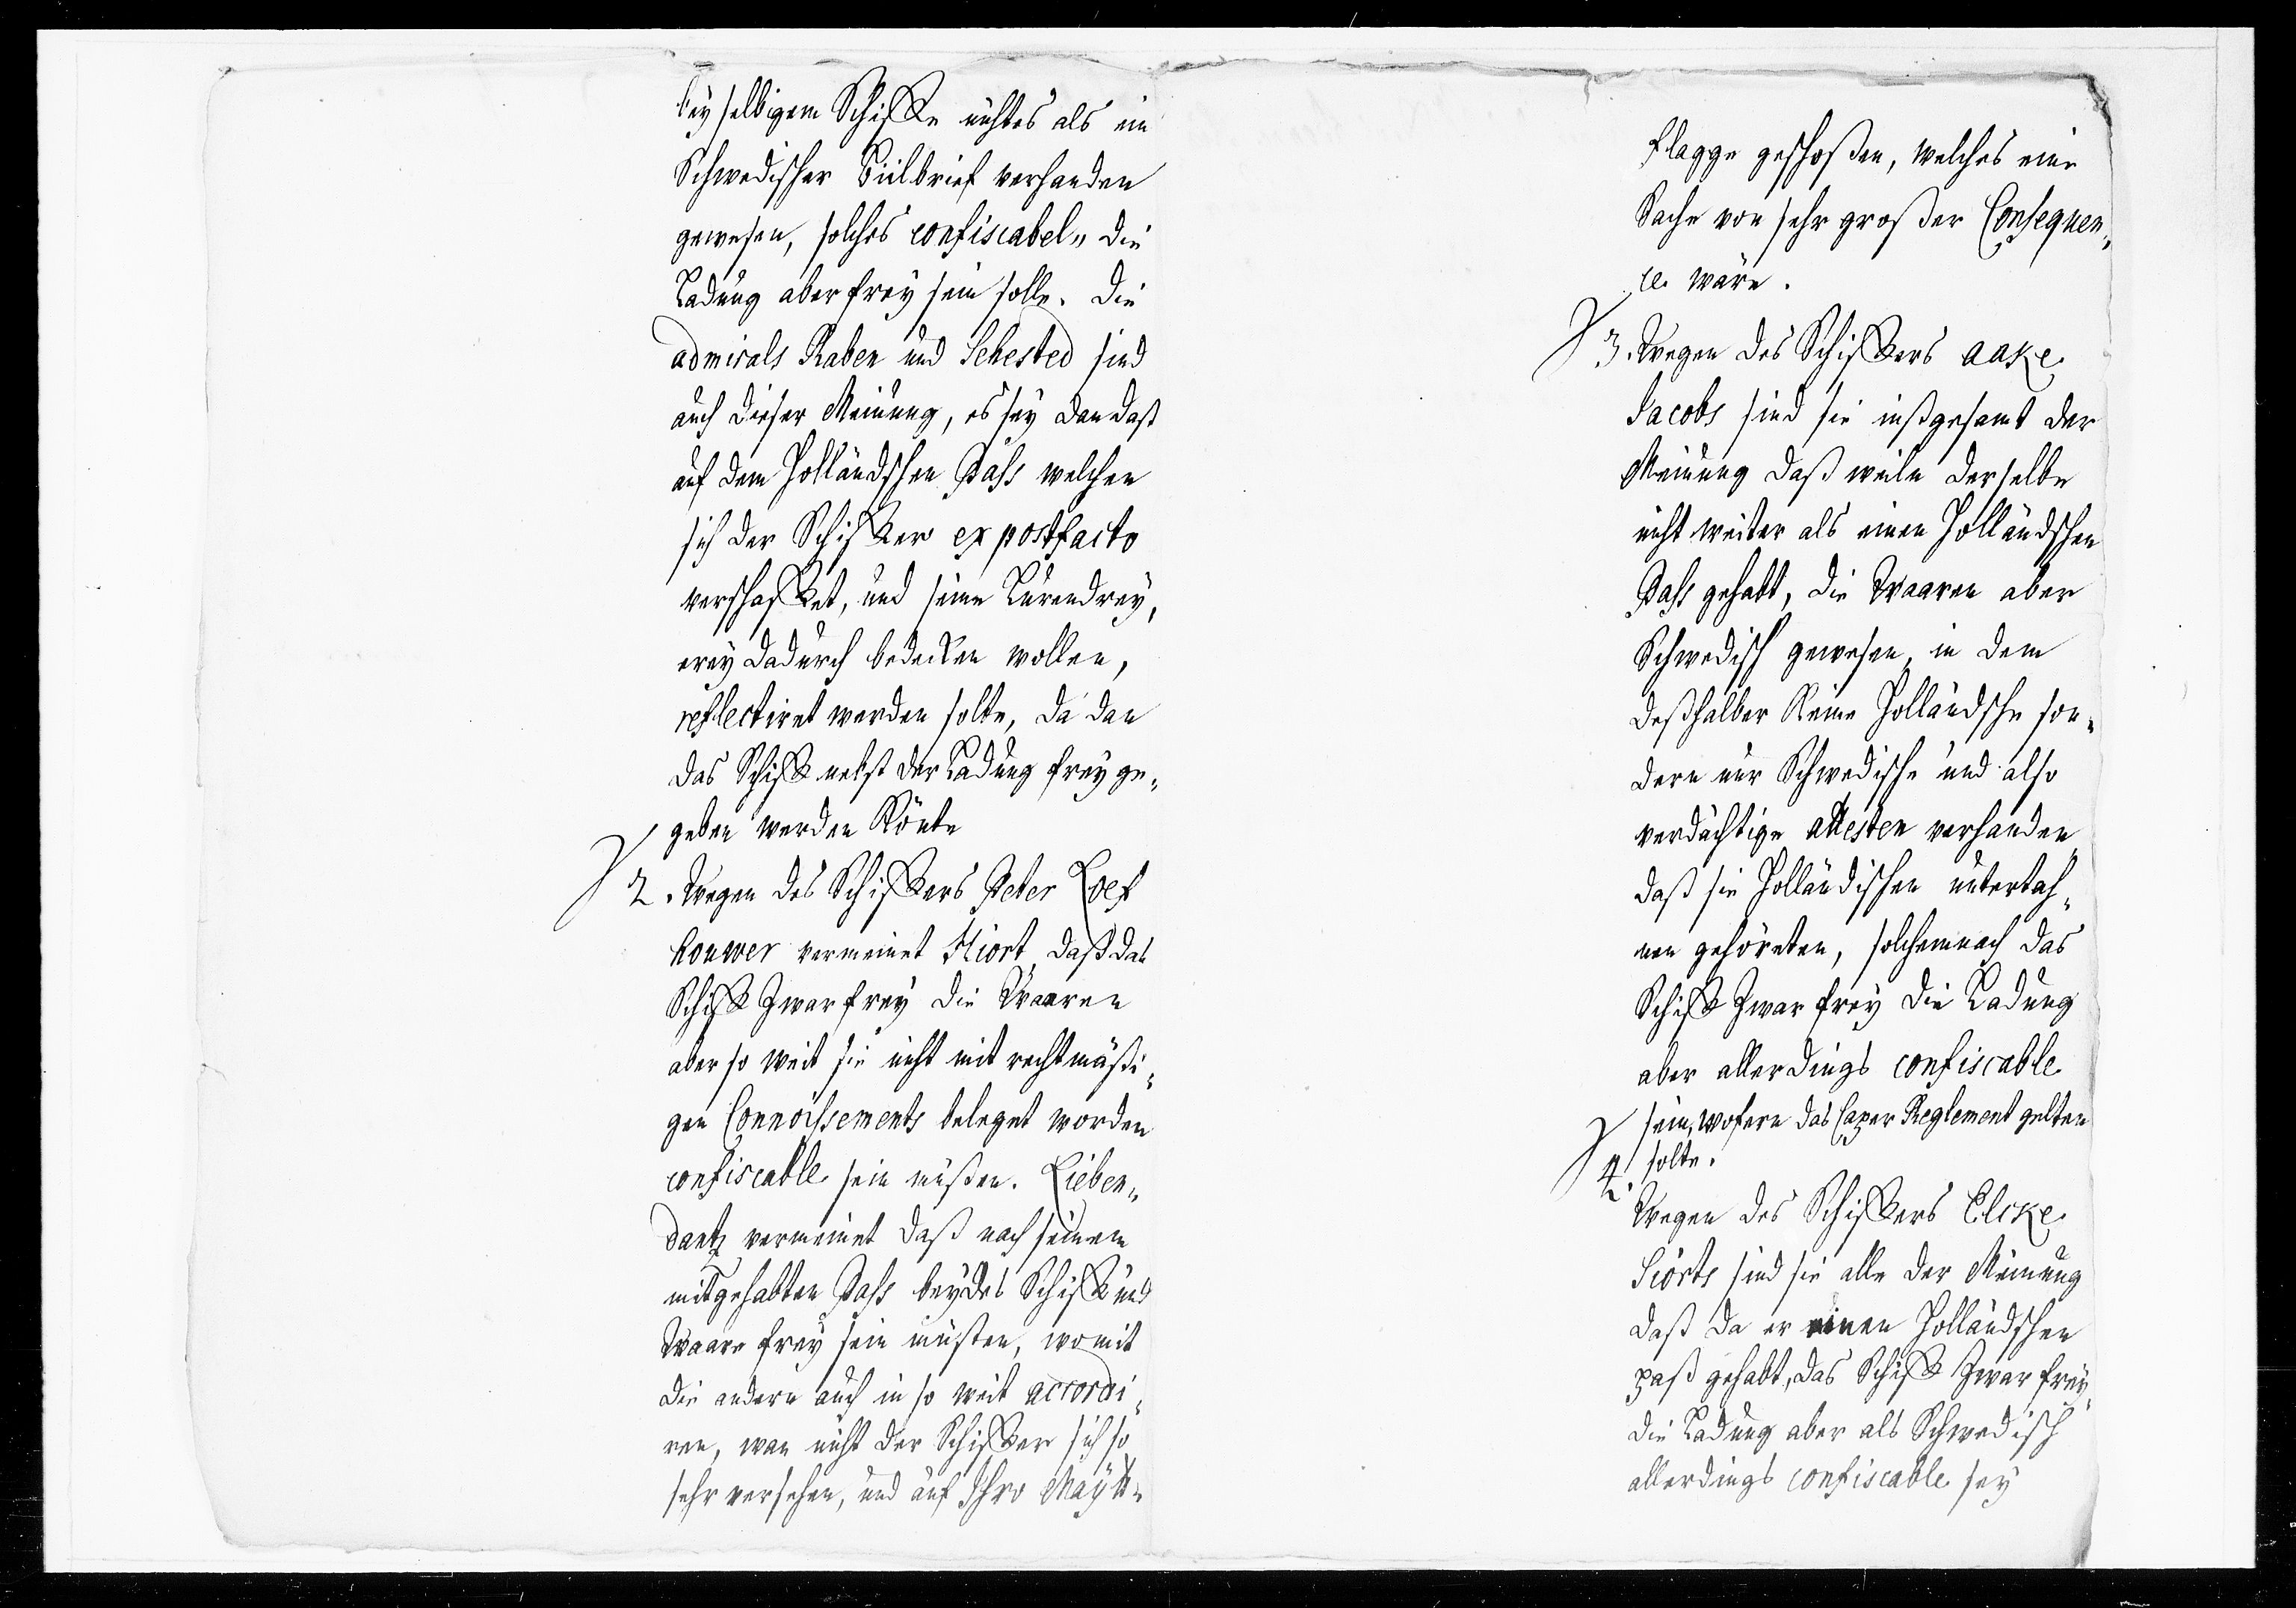 bey selbigem Schiffe nichtes als ein
Schwedischer Biilbrief verhanden
gewesen, solches confiscabel„ die
Ladung aber frey sein solle. Die
admirals Raben und Sehested sind
auch dieser Meinung, es sey dan daß
auf dem Holländschen Pass welchen
sich der Schiffer ex postfacto
verschaffet, und seine Lurendrey,
erey dadurch bedecken wollen,
reflectiret werden solte, da dan
das Schiff nebst der Ladung frey ge„
geben werden könte
2. Wegen des Schiffers Peter Loef
houwer vermeinet Hiort, daß das
Schiff zwar frey die Waaren
aber so weit sie nicht mit rechtmäßi„
gen Connoissements beleget worden
confiscable sein müßen. Lieben„
dantz vermeinet daß nach seinem
mitgehabten Pass beydes Schiff und
Waare frey sein müsten, womit
die andern auch in so weit accordi„
ren, wan nicht der Schiffer sich so
sehr versehen, und auf Ihro Maytt„
flagge geschoßen, welches eine
Sache von sehr großer Consequen„
ce wäre.
3. Wegen des Schiffers aake
Jacobs sind sie inßgesamt der
Meinung daß weiln derselbe
nicht weiter als einen Holländschen
Pass gehabt, die Waaren aber
Schwedisch gewesen, in dem
deßhalber keine Holländsche son„
dern nur Schwedische und also
verdächtige attesten verhanden
daß sie Holländischen untertah„
nen gehöreten, solchemnach das
Schiff zwar frey die Ladung
aber allerdings confiscable
sein, wofern das Caper Reglement gelten
solte.
4. Wegen des Schiffers Elcke
Siörts sind sie alle der Meinung
daß da er einen Holländschen
paß gehabt, das Schiff zwar frey,
die Ladung aber als Schwedisch
allerdings confiscable sey